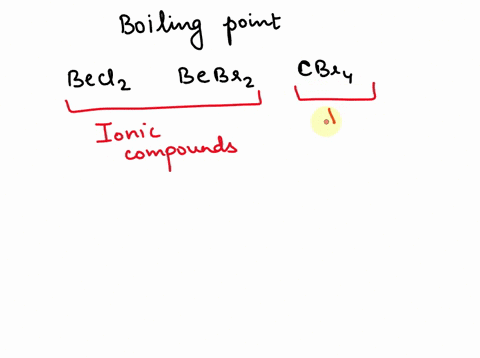 Boiling point
BeCl₂ BeBr₂ CBr₄
Ionic
compounds